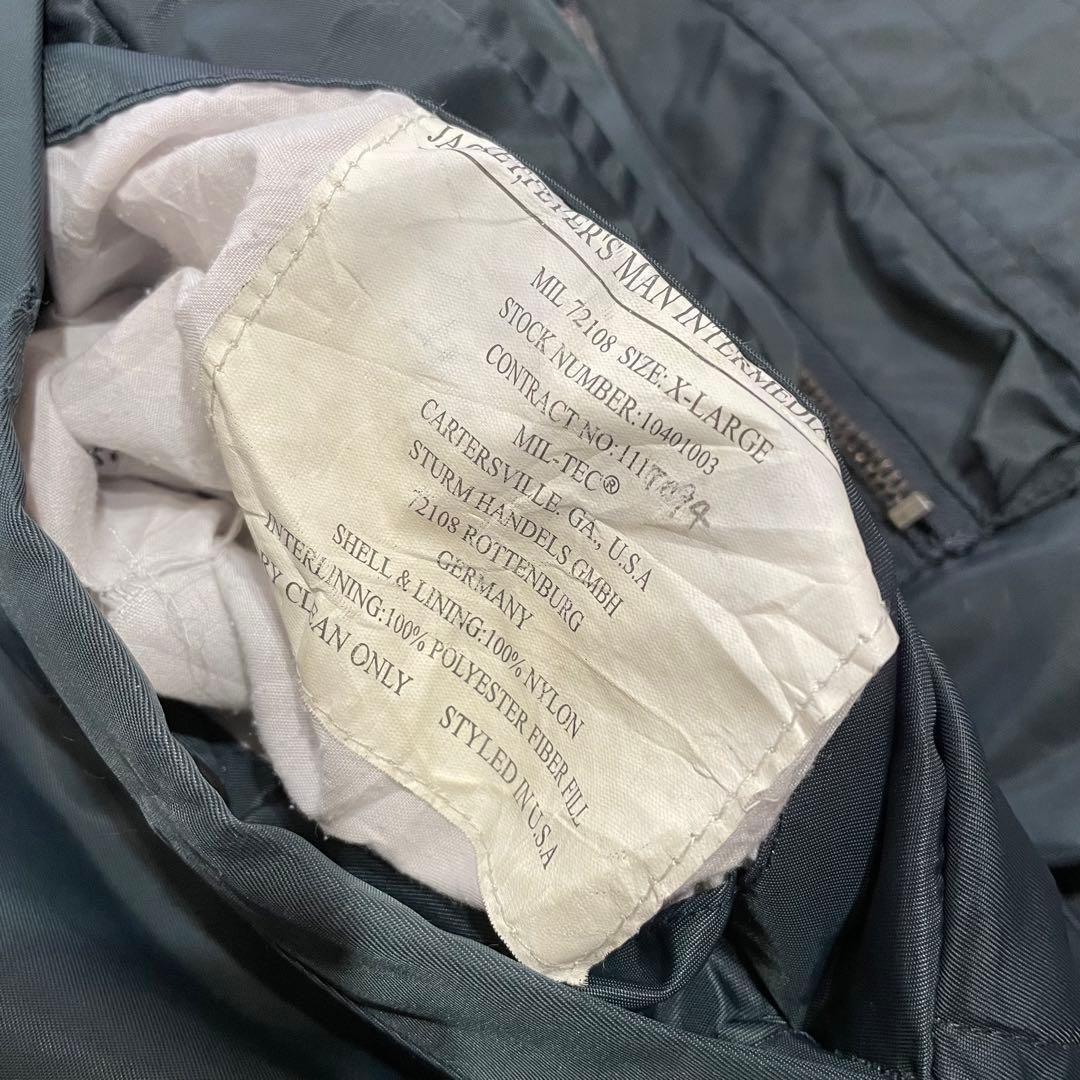 MAN INTERMEDIA
MIL 72108 SIZE: X-LARGE
STOCK NUMBER:10401003
CONTRACT NO:111
MIL-TEC®
CARTERSVILLE, GA., U.S.A
STURM HANDELS GMBH
72108 ROTTENBURG
GERMANY
SHELL & LINING:100% NYLON
INTERLINING:100% POLYESTER FIBER FILL
CLEAN ONLY
STYLED IN U.S.A